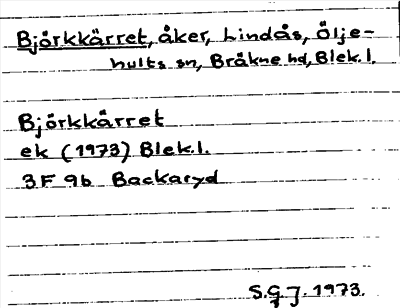 Björkkärret, åker, Lindås, Ölje-
hults sn, Bräkne hd, Blek.l.
Björkkärret
ek (1973) Blek.l.
3F 9b Backaryd
S.G.J. 1973.